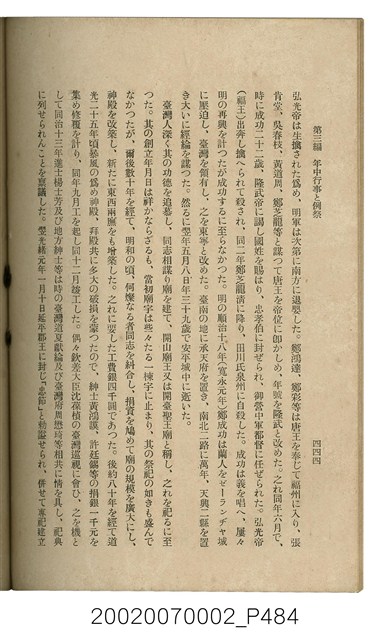 第三編　年中行事と例祭
四四四
弘光帝は生擒された爲め、明軍は次第に南方に退嬰した。鄭鴻逵、鄭彩等は唐王を奉じて福州に入り、張
肯堂、吳春枝、黃道周、鄭芝龍等と謀つて唐王を帝位に卽かしめ、年號を隆武と改めた。之れ同年六月で、
時に成功二十二歲、隆武帝に謁し國姓を賜はり、忠孝伯に封ぜられ、御營中軍都督に任ぜられた。弘光帝
(福王)出奔し擒へられて殺され、同二年鄭芝龍淸に降り、田川氏泉州に自殺した。成功は義を唱へ、屢々
明の再興を計つたが成功するに至らなかつた。明の順治十八年(寬永元年)鄭成功は蘭人をゼーランヂヤ城
に壓迫し、臺灣を領有し、之を東寧と改めた。臺南の地に承天府を置き、南北二路に萬年、天興二縣を置
き大いに經綸を謀つた。然るに翌年五月八日年三十九歲で安平城中に逝いた。
臺灣人深く其の功德を追慕し、同志相謀り廟を建て、開山廟王又は開臺聖王廟と稱し、之れを祀るに至
つた。其の創立年月日は祥かならざるも、當初廟宇は些々たる一棟宇に止まり、其の祭祀の如きも盛んで
なかつたが、爾後數十年を經て、明和の頃、何燦なる者同志を糾合し、捐資を鳩めて廟の規模を廣大にし、
神殿を改築し、新たに東西兩廡をも增築した。之れに要した工費銀四千圓であつた。後約八十年を經て道
光二十五年頃暴風の爲め神殿、拜殿共に多大の破損を蒙つたので、紳士黃鴻謨、許廷錫等の捐銀一千元を
集め修覆を計り、同年九月工を起し同十二月竣工した。偶々欽差大臣沈葆楨の臺灣巡視に會ひ、之を機と
して同治十三年進士楊士芳及び地方紳士等は時の臺灣道夏獻綸及び臺灣府周懋琦等相共に情を具し、祀典
に列せられんことを稟議した。翌光緒元年一月十日延平郡王に封じ『忠節』と勅謚せられ、併せて專祀建立
20020070002_P484